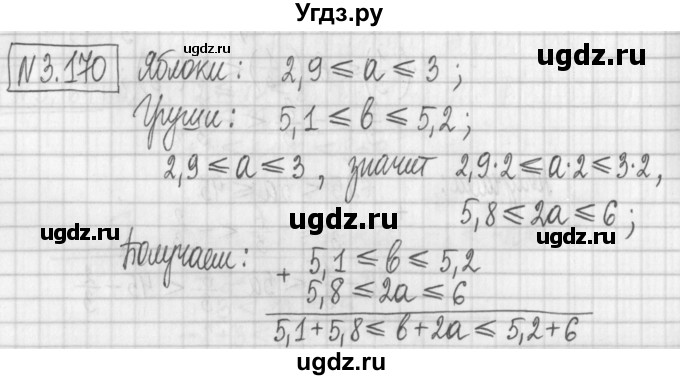 Угдз.ру
N 3.170 Яблоки: 2,9 ⩽ a ⩽ 3 ;
ugdz.ru ugdz.ru
Груши: 5,1 ⩽ b ⩽ 5,2 ;
2,9 ⩽ a ⩽ 3 , значит 2,9·2 ⩽ a·2 ⩽ 3·2,
5,8 ⩽ 2a ⩽ 6 ;
ugdz.ru ugdz.ru ugdz.ru
Получаем: + 5,1 ⩽ b ⩽ 5,2
5,8 ⩽ 2a ⩽ 6
5,1+5,8 ⩽ b+2a ⩽ 5,2+6
ugdz.ru